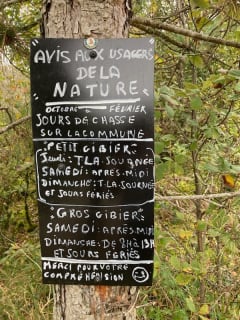 AVIS AUX USAGERS
DE LA
NATURE
OCTOBRE — FÉVRIER
JOURS DE CHASSE
SUR LA COMMUNE
PETIT GIBIER:
Jeudi: TLA JOURNÉE
SAMEDI: APRES-MIDI
DIMANCHE: TLA JOURNÉE
ET JOURS FÉRIÉS
GROS GIBIER:
SAMEDI: APRES-MIDI
DIMANCHE: DE 8H À 13H
ET JOURS FÉRIÉS
MERCI POUR VOTRE
COMPRÉHENSION